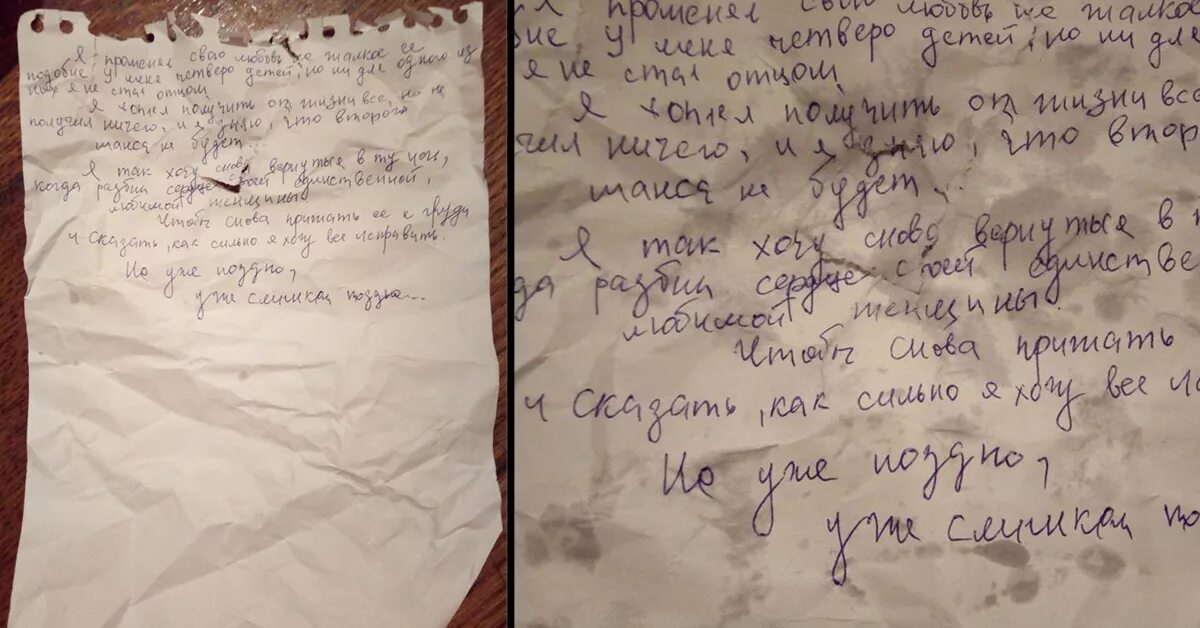 Я променял свою любовь на жалкое её
подобие. У меня четверо детей, но ни для одного из
них я не стал отцом
Я хотел получить от жизни все, но не
получил ничего, и я знаю, что второго
шанса не будет...
Я так хочу снова вернуться в ту ночь,
когда разбил сердце своей единственной,
любимой женщины.
Чтобы снова прижать ее к груди
и сказать, как сильно я хочу все исправить.
Но уже поздно,
уже слишком поздно...
Я променял свою любовь на жалкое
бие. У меня четверо детей, но ни для
я не стал отцом
Я хотел получить от жизни все
чил ничего, и я знаю, что втор
шанса не будет...
Я так хочу снова вернуться в
да разбил сердце своей единстве
любимой женщины.
Чтобы снова прижать
и сказать, как сильно я хочу все ис
Но уже поздно,
уже слишком по